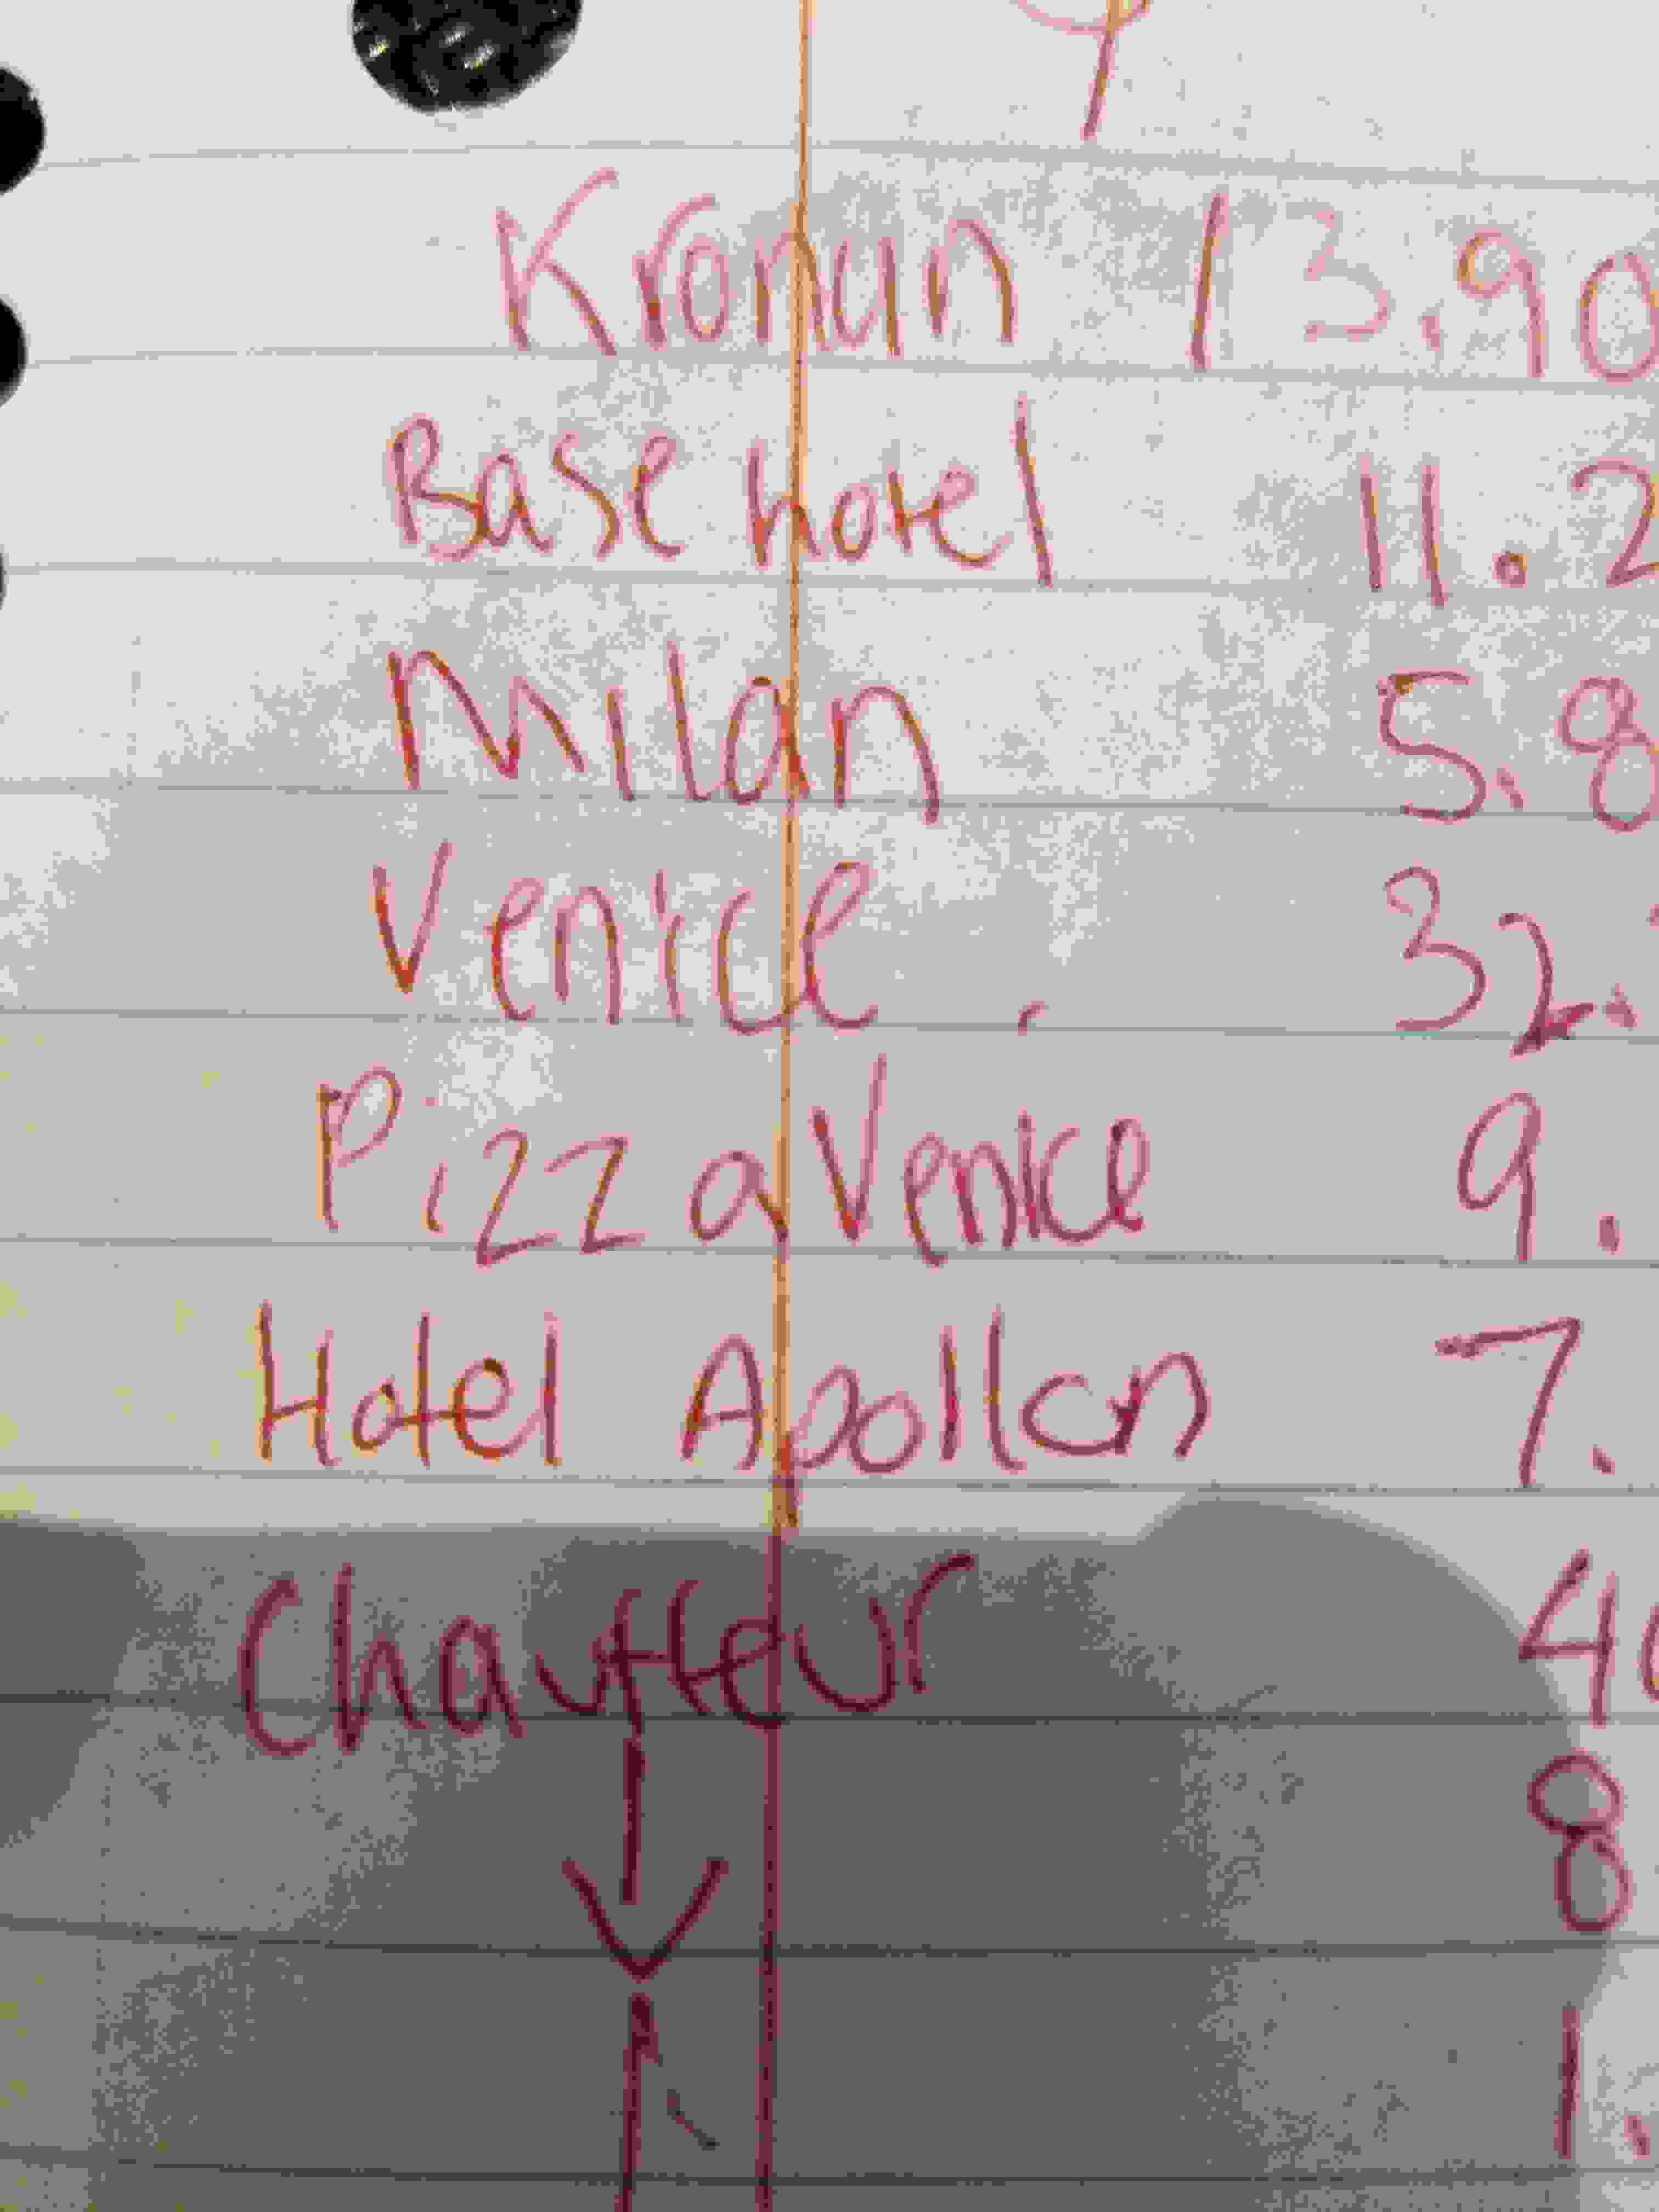 Kronan 13.90
Base hotel 11.2
Milan 5.8
Venice 32.
Pizza Venice 9.
Hotel Apollon 7.
Chauffeur 40
8
1.